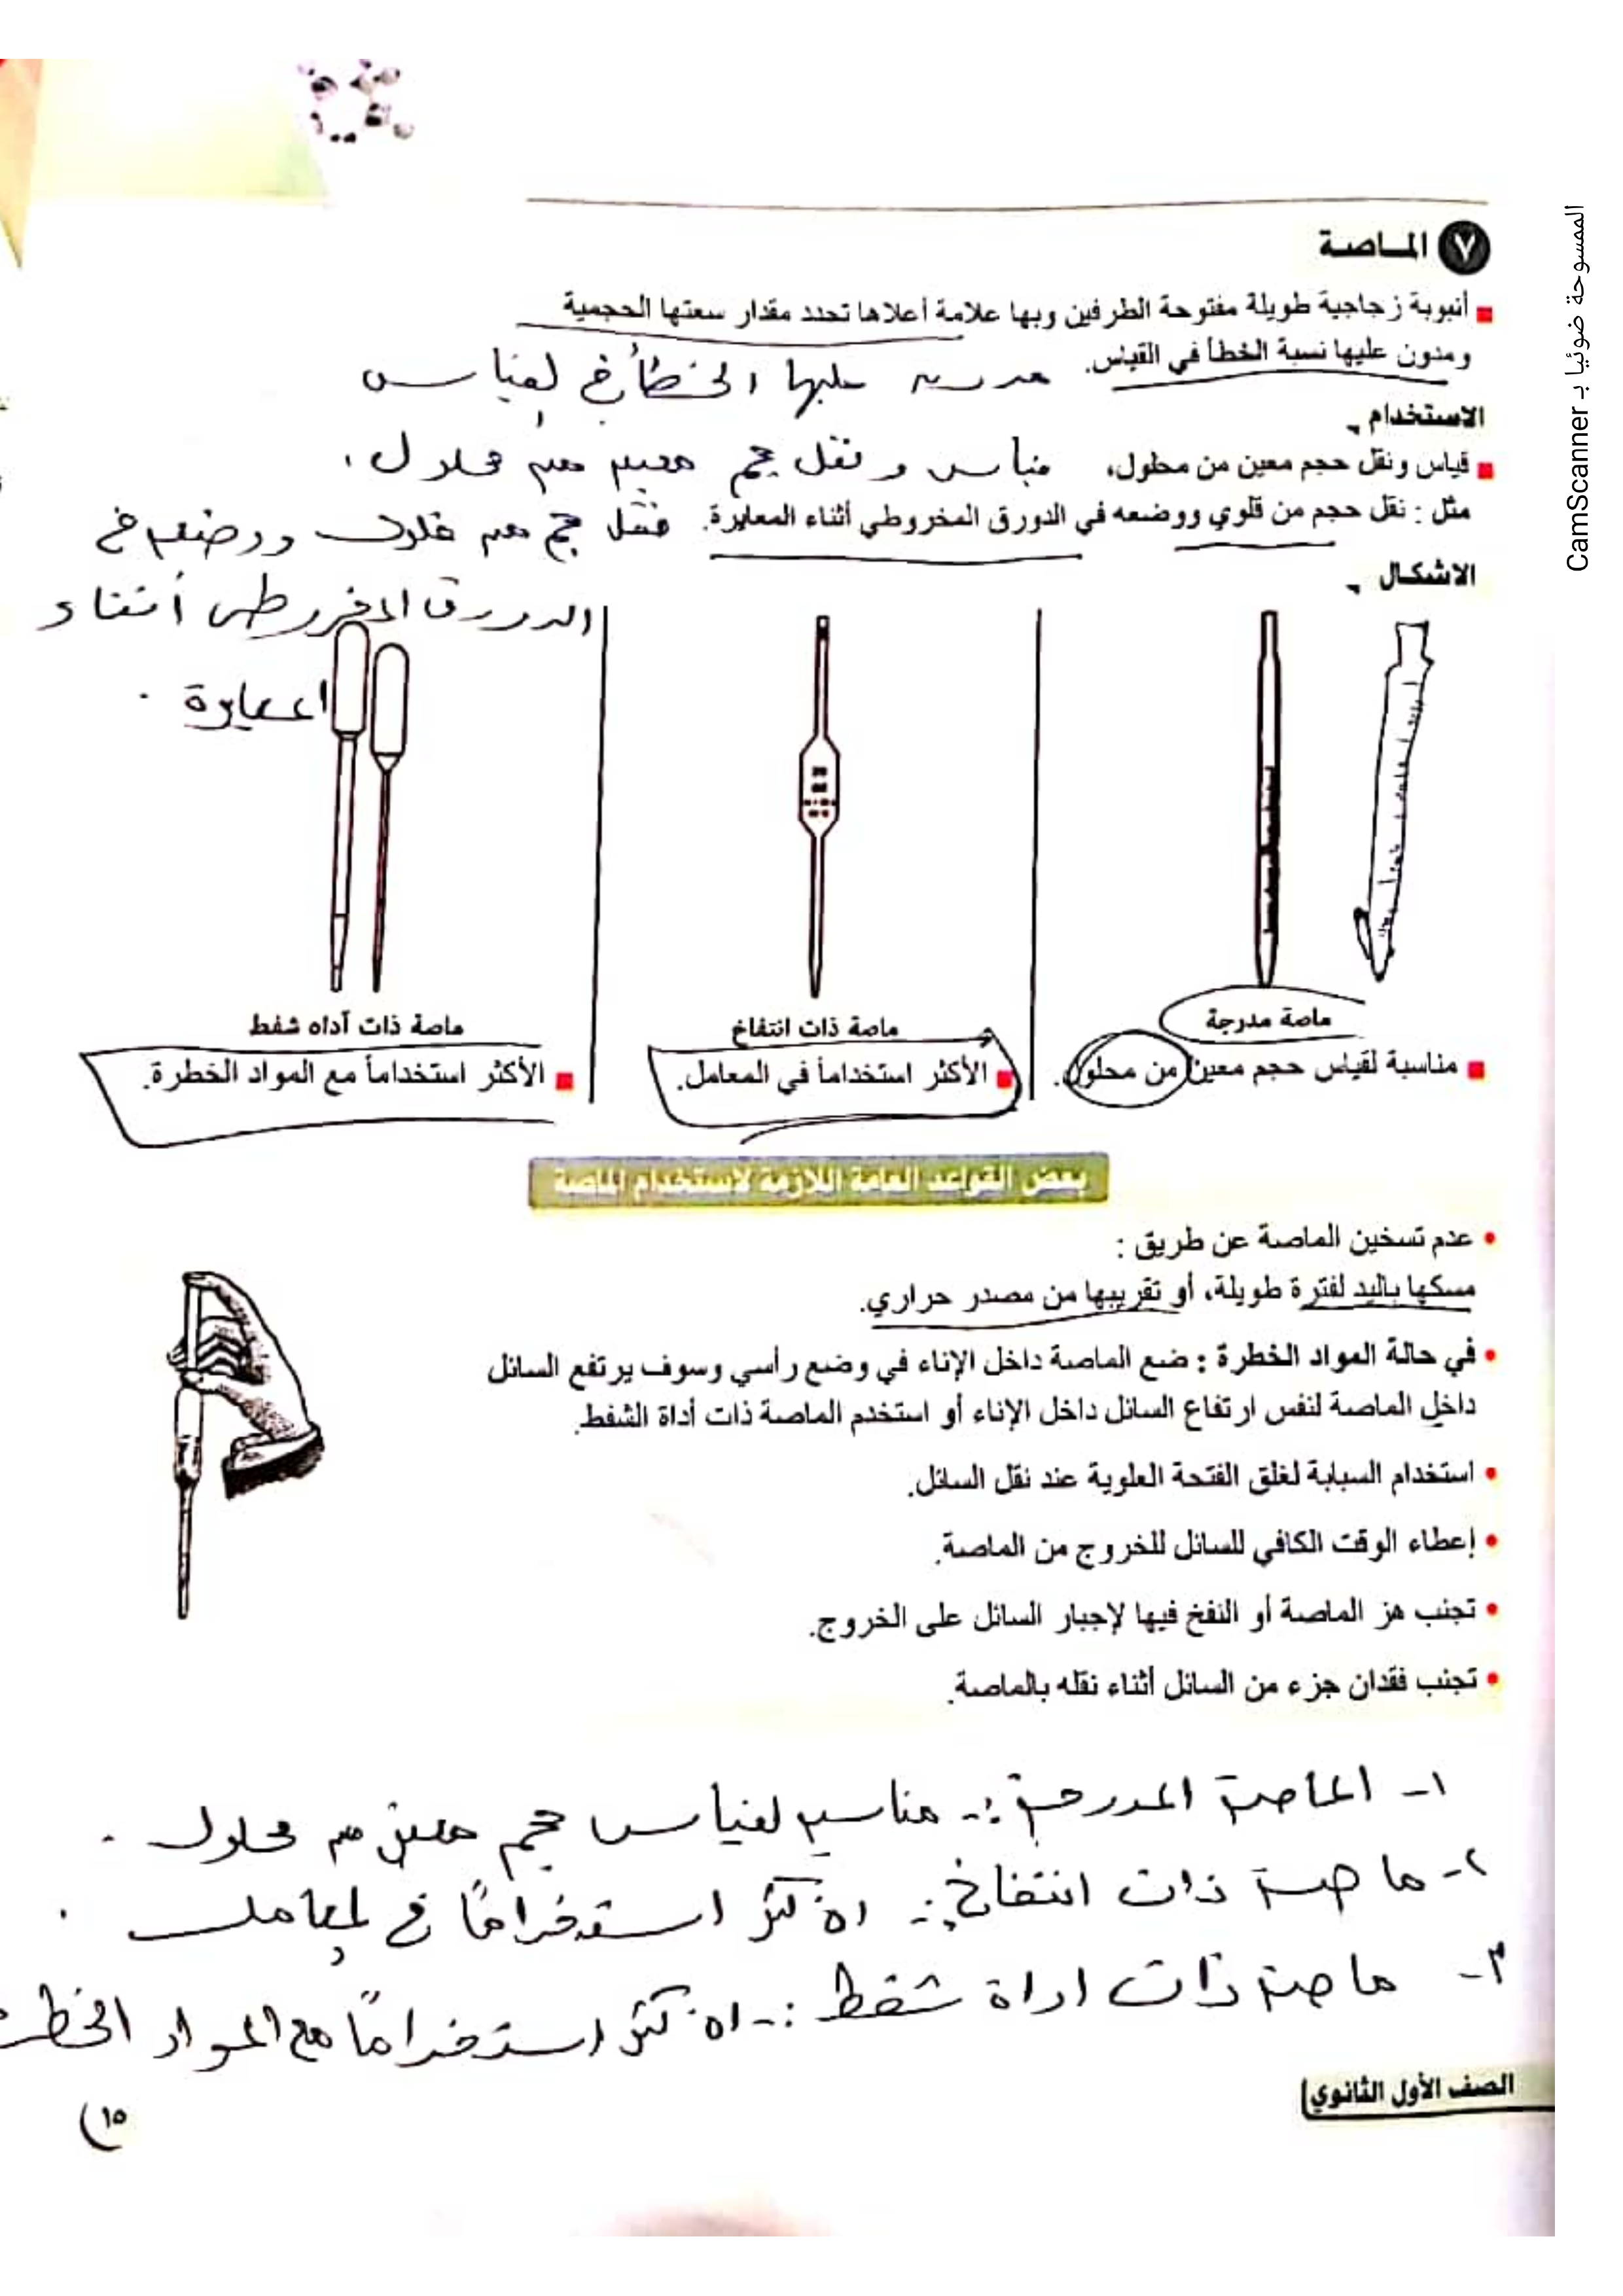 ٧ الماصة
أنبوبة زجاجية طويلة مفتوحة الطرفين وبها علامة أعلاها تحدد مقدار سعتها الحجمية
ومدون عليها نسبة الخطأ في القياس.
عليها الخطأ في لقياس
الاستخدام
قياس ونقل حجم معين من محلول،
قياس ونقل حجم معين من محلول.
مثل : نقل حجم من قلوي ووضعه في الدورق المخروطي أثناء المعايرة.
فنقل حجم من قلوى ووضعه في
الدورق المخروطى أثناء
المعايرة.
الاشكال
ماصة مدرجة
مناسبة لقياس حجم معين من محلول.
ماصة ذات انتفاخ
الأكثر استخداماً في المعامل.
ماصة ذات آداه شفط
الأكثر استخداماً مع المواد الخطرة.
بعض القواعد العامة اللازمة لاستخدام الماصة
• عدم تسخين الماصة عن طريق :
مسكها باليد لفترة طويلة، أو تقريبها من مصدر حراري.
• في حالة المواد الخطرة : ضع الماصة داخل الإناء في وضع رأسي وسوف يرتفع السائل
داخل الماصة لنفس ارتفاع السائل داخل الإناء أو استخدم الماصة ذات أداة الشفط.
• استخدام السبابة لغلق الفتحة العلوية عند نقل السائل.
• إعطاء الوقت الكافي للسائل للخروج من الماصة.
• تجنب هز الماصة أو النفخ فيها لإجبار السائل على الخروج.
• تجنب فقدان جزء من السائل أثناء نقله بالماصة.
١- الماصة المدرجة :- مناسبه لقياس حجم معين من محلول.
٢- ماصة ذات انتفاخ :- الأكثر استخدامًا في لمعامل.
٣- ماصة ذات اداة شفط :- الأكثر استخدامًا مع المواد الخطرة
الصف الأول الثانوي
١٥
الممسوحة ضوئيا بـ CamScanner